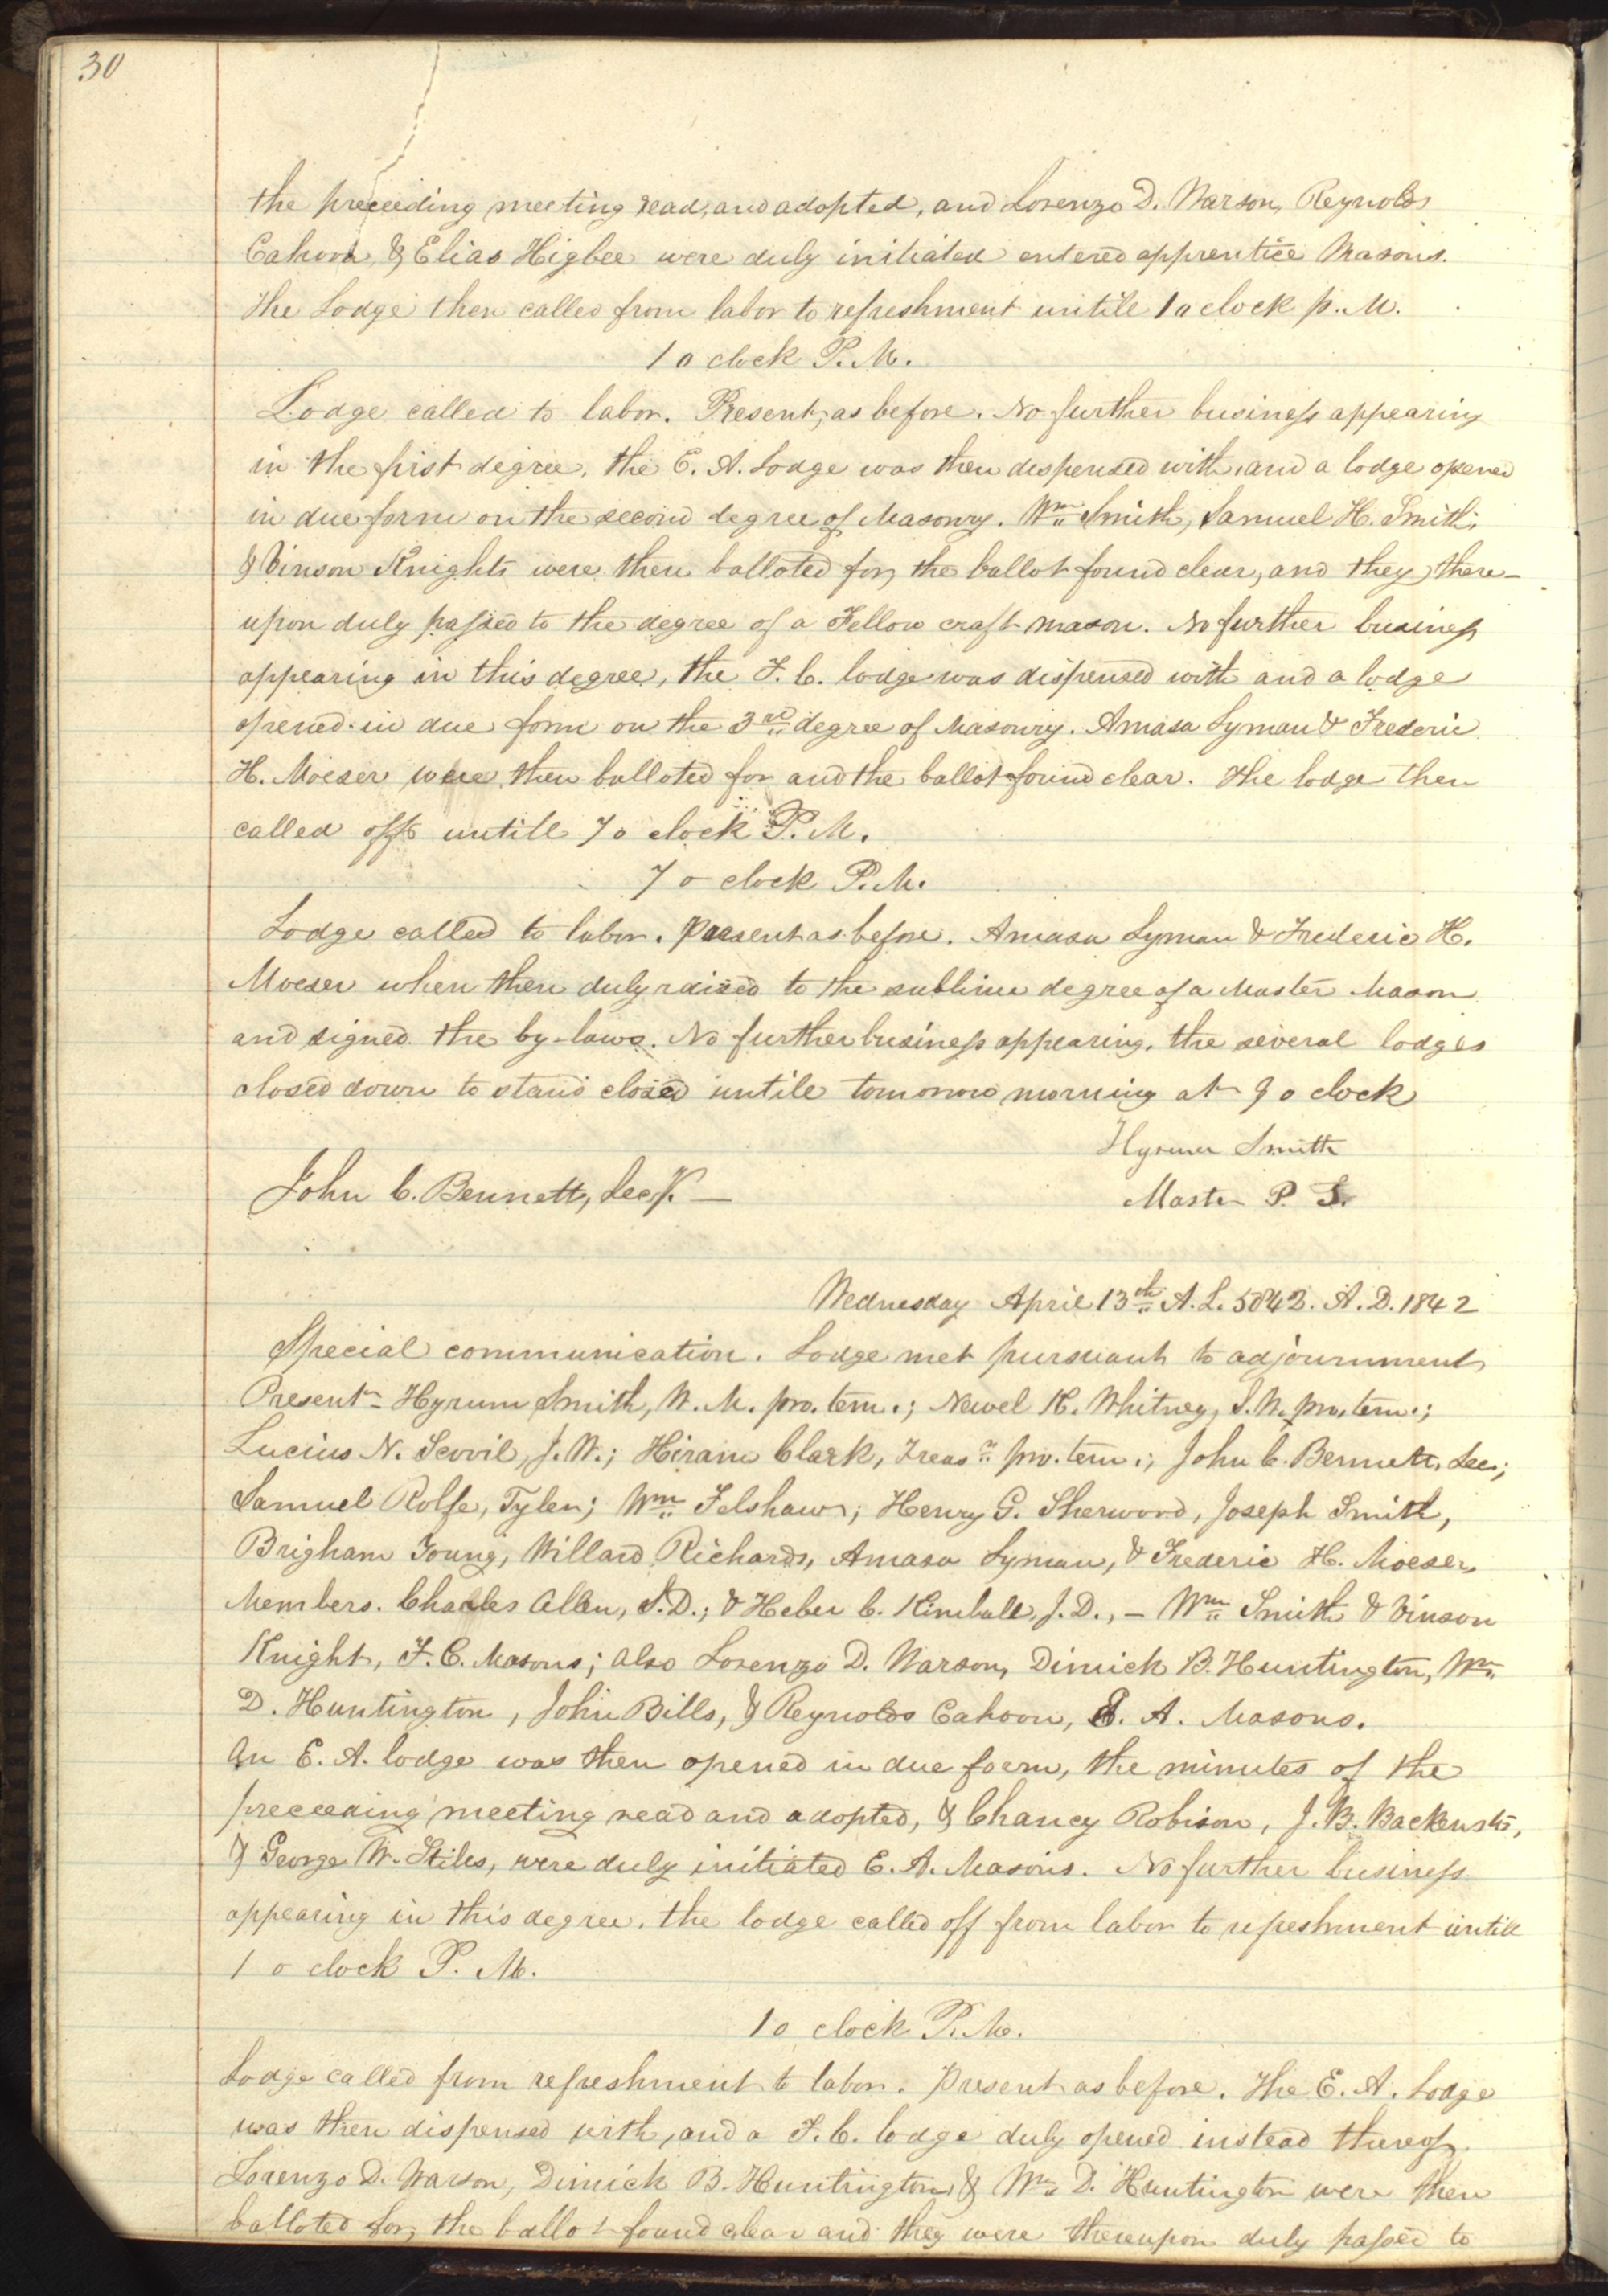 30
the preceeding meeting read, and adopted, and Lorenzo D. Warson, Reynolds
Cahoon, & Elias Higbee were duly initiated entered apprentice Masons.
The Lodge then called from labor to refreshment untile 1 o clock p. M.
1 o clock P. M.
Lodge called to labor. Present, as before. No further business appearing
in the first degree, the E. A. Lodge was then despensed with, and a lodge opened
in due form on the second degree of Masonry. Wm. Smith, Samuel H. Smith,
& Vinson Knights were then balloted for, the ballot found clear, and they there-
upon duly passed to the degree of a Fellow craft mason. No further business
appearing in this degree, the F. C. lodge was dispensed with and a lodge
opened in due form on the 3rd degree of Masonry. Amasa Lyman & Frederic
H. Moeser were then balloted for and the ballot found clear. The lodge then
called off untill 7 o clock P. M.
7 o clock P. M.
Lodge called to labor. Present as before. Amasa Lyman & Frederic H.
Moeser when then duly raised to the sublime degree of a Master Mason
and signed the by-laws. No further business appearing, the several lodges
closed down to stand closed untile tomorrow morning at 9 o clock
Hyrum Smith
John C. Bennett, Secy. —
Master P. T.
Wednesday April 13th A. L. 5842. A. D. 1842
Special communication. Lodge met pursuant to adjournment,
Present- Hyrum Smith, W. M. pro. tem.; Newel K. Whitney, S. W. pro. tem.;
Lucius N. Scovil, J. W.; Hiram Clark, Treasr. pro. tem.; John C. Bennett, Sec.;
Samuel Rolfe, Tyler; Wm. Felshaw; Henry G. Sherwood, Joseph Smith,
Brigham Young, Willard Richards, Amasa Lyman, & Frederic H. Moeser,
Members. Charles Allen, S. D.; & Heber C. Kimball, J. D., — Wm. Smith & Vinson
Knight, F. C. Masons; also Lorenzo D. Warson, Dimick B. Huntington, Wm.
D. Huntington, John Bills, & Reynolds Cahoon, E. A. Masons.
An E. A. lodge was then opened in due form, the minutes of the
preceeding meeting read and adopted, & Chancy Robison, J. B. Backenstos,
& George W. Stiles, were duly initiated E. A. Masons. No further business
appearing in this degree, the lodge called off from labor to refreshment untill
1 o clock P. M.
1 o clock P. M.
Lodge called from refreshment to labor. Present as before. The E. A. Lodge
was then dispensed with, and a F. C. lodge duly opened instead thereof.
Lorenzo D. Warson, Dimick B. Huntington & Wm. D. Huntington were then
balloted for, the ballot found clear and they were thereupon duly passed to